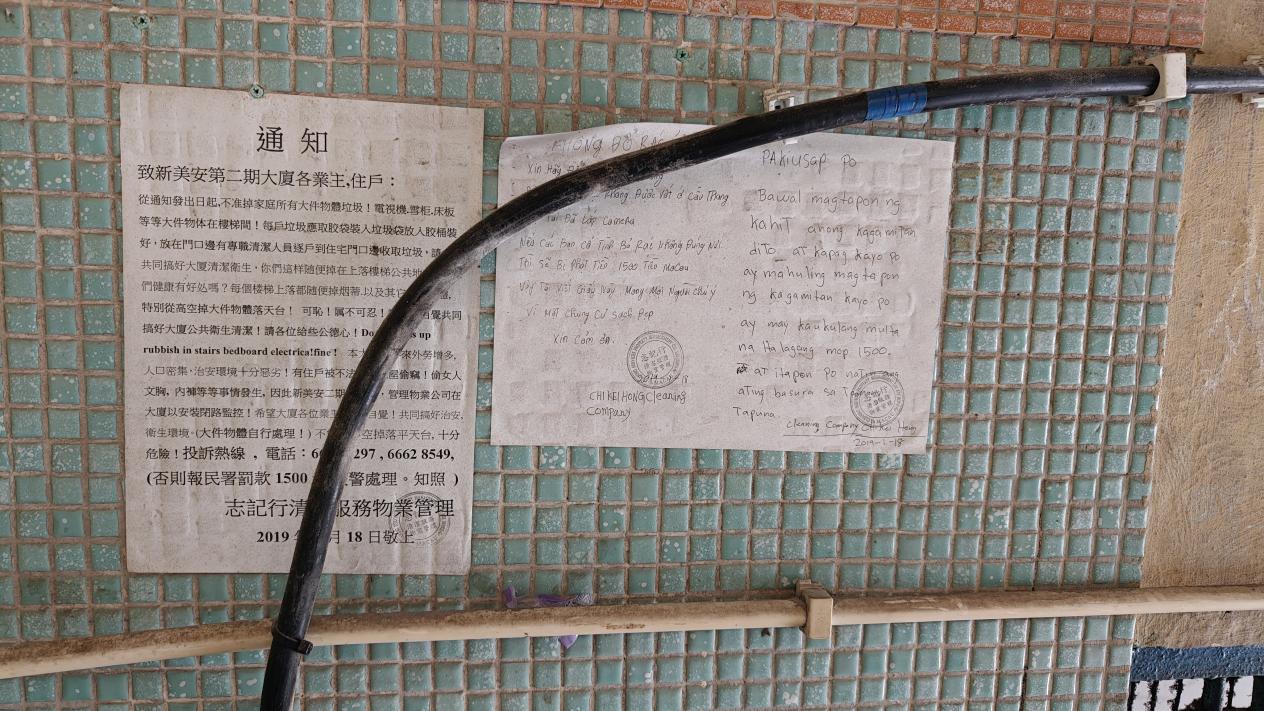 通知
致新美安第二期大廈各業主,住戶：
從通知發出日起,不准掉家庭所有大件物體垃圾！電視機,雪柜,床板
等等大件物体在樓梯間！每戶垃圾應取胶袋裝入垃圾袋放人胶桶裝
好，放在門口邊有專職清潔人員逐戶到住宅門口邊收取垃圾，請
共同搞好大廈清潔衛生，你們這樣随便掉在上落樓梯公共地
們健康有好処嗎？每個樓梯上落都随便掉烟蒂,以及其它
特別從高空掉大件物體落天台！ 可恥！属不可忍！ 自覺共同
搞好大廈公共衛生清潔！請各位給些公德心！Do s up
rubbish in stairs bedboard electrica!fine！ 本 來外勞增多,
人口密集，治安環境十分恶劣！有住戶被不法 屋偷竊！偷女人
文胸，内褲等等事情發生，因此新美安二期 ，管理物業公司在
大廈以安裝閉路監控！希望大廈各位業主 自覺！共同搞好治安,
衛生環境。(大件物體自行處理！) 不 空掉落平天台, 十分
危險！投訴熱線，電話： 297 , 6662 8549,
(否則報民署罰款 1500 警處理。知照 )
志記行清 服務物業管理
2019 年 月 18 日敬上
KHÔNG ĐỔ RÁC
Xin Hãy
Không Được Vứt ở Cầu Thang
Đã Lắp Camera
Nếu Các Bạn Cố Tình Bỏ Rác Không Đúng Nơi
Thì Sẽ Bị Phạt Tiền 1500 Tiền MaCau
Vậy Tôi Viết Giấy Này Mong Mọi Người Chú ý
Vì Một Chung Cư Sạch Đẹp
Xin Cảm ơn
CHI KEI HONG Cleaning
Company
PAKiusap Po
Bawal magtapon ng
kahit anong kagamitan
dito at kapag kayo po
ay mahuling magtapon
ng kagamitan kayo po
ay may kaukulang multa
na Halagang mop 1500.
at itapon po natin ang
ating basura sa Tamang
Tapunan.
Cleaning Company Chi Kei Hong
2019-1-18